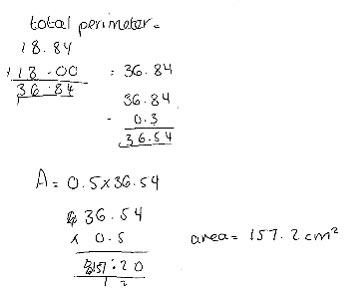 total perimeter =
18.84
+ 18.00 = 36.84
36.84
36.84
- 0.3
36.54
A = 0.5 x 36.54
36.54
x 0.5
area = 157.2 cm²